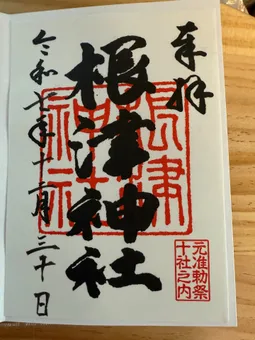 奉拝
根津神社
令和七年十一月三十日
根津
神社
元准勅祭
十社之内